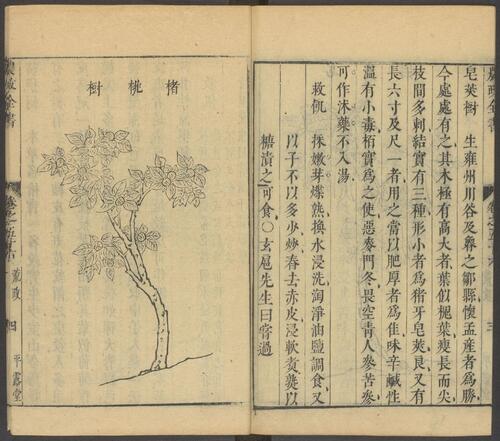 皂莢樹　生雍州川谷及魯之鄒縣懷孟產者為勝
今處處有之其木極有高大者葉似槐葉瘦長而尖
枝間多刺結實有三種形小者為猪牙皂莢良又有
長六寸及尺一者用之當以肥厚者為佳味辛鹹性
溫有小毒栢實為之使惡麥門冬畏空青人參苦參
可作沐藥不入湯
救飢　採嫩芽煠熟換水浸洗淘淨油鹽調食又
以子不以多少炒舂去赤皮浸軟煑熟以
糖漬之可食○玄扈先生曰嘗過
楮桃樹
農政全書　卷之五十六　荒政　四　平露堂